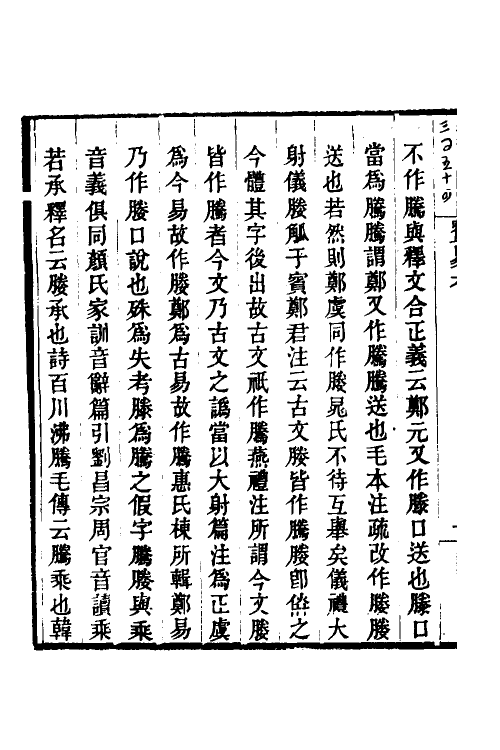 不作騰與釋文合正義云鄭元又作滕口送也滕口
當爲騰騰謂鄭又作騰騰送也毛本注疏改作媵媵
送也若然則鄭虞同作媵晁氏不待互舉矣儀禮大
射儀媵觚于賓鄭君注云古文媵皆作騰媵卽倂之
今體其字後出故古文祇作騰燕禮注所謂今文媵
皆作騰者今文乃古文之譌當以大射篇注爲正虞
爲今易故作媵鄭爲古易故作騰惠氏棟所輯鄭易
乃作媵口說也殊爲失考滕爲騰之假字騰媵與乘
音義俱同顏氏家訓音辭篇引劉昌宗周官音讀乘
若承釋名云媵承也詩百川沸騰毛傳云騰乘也韓